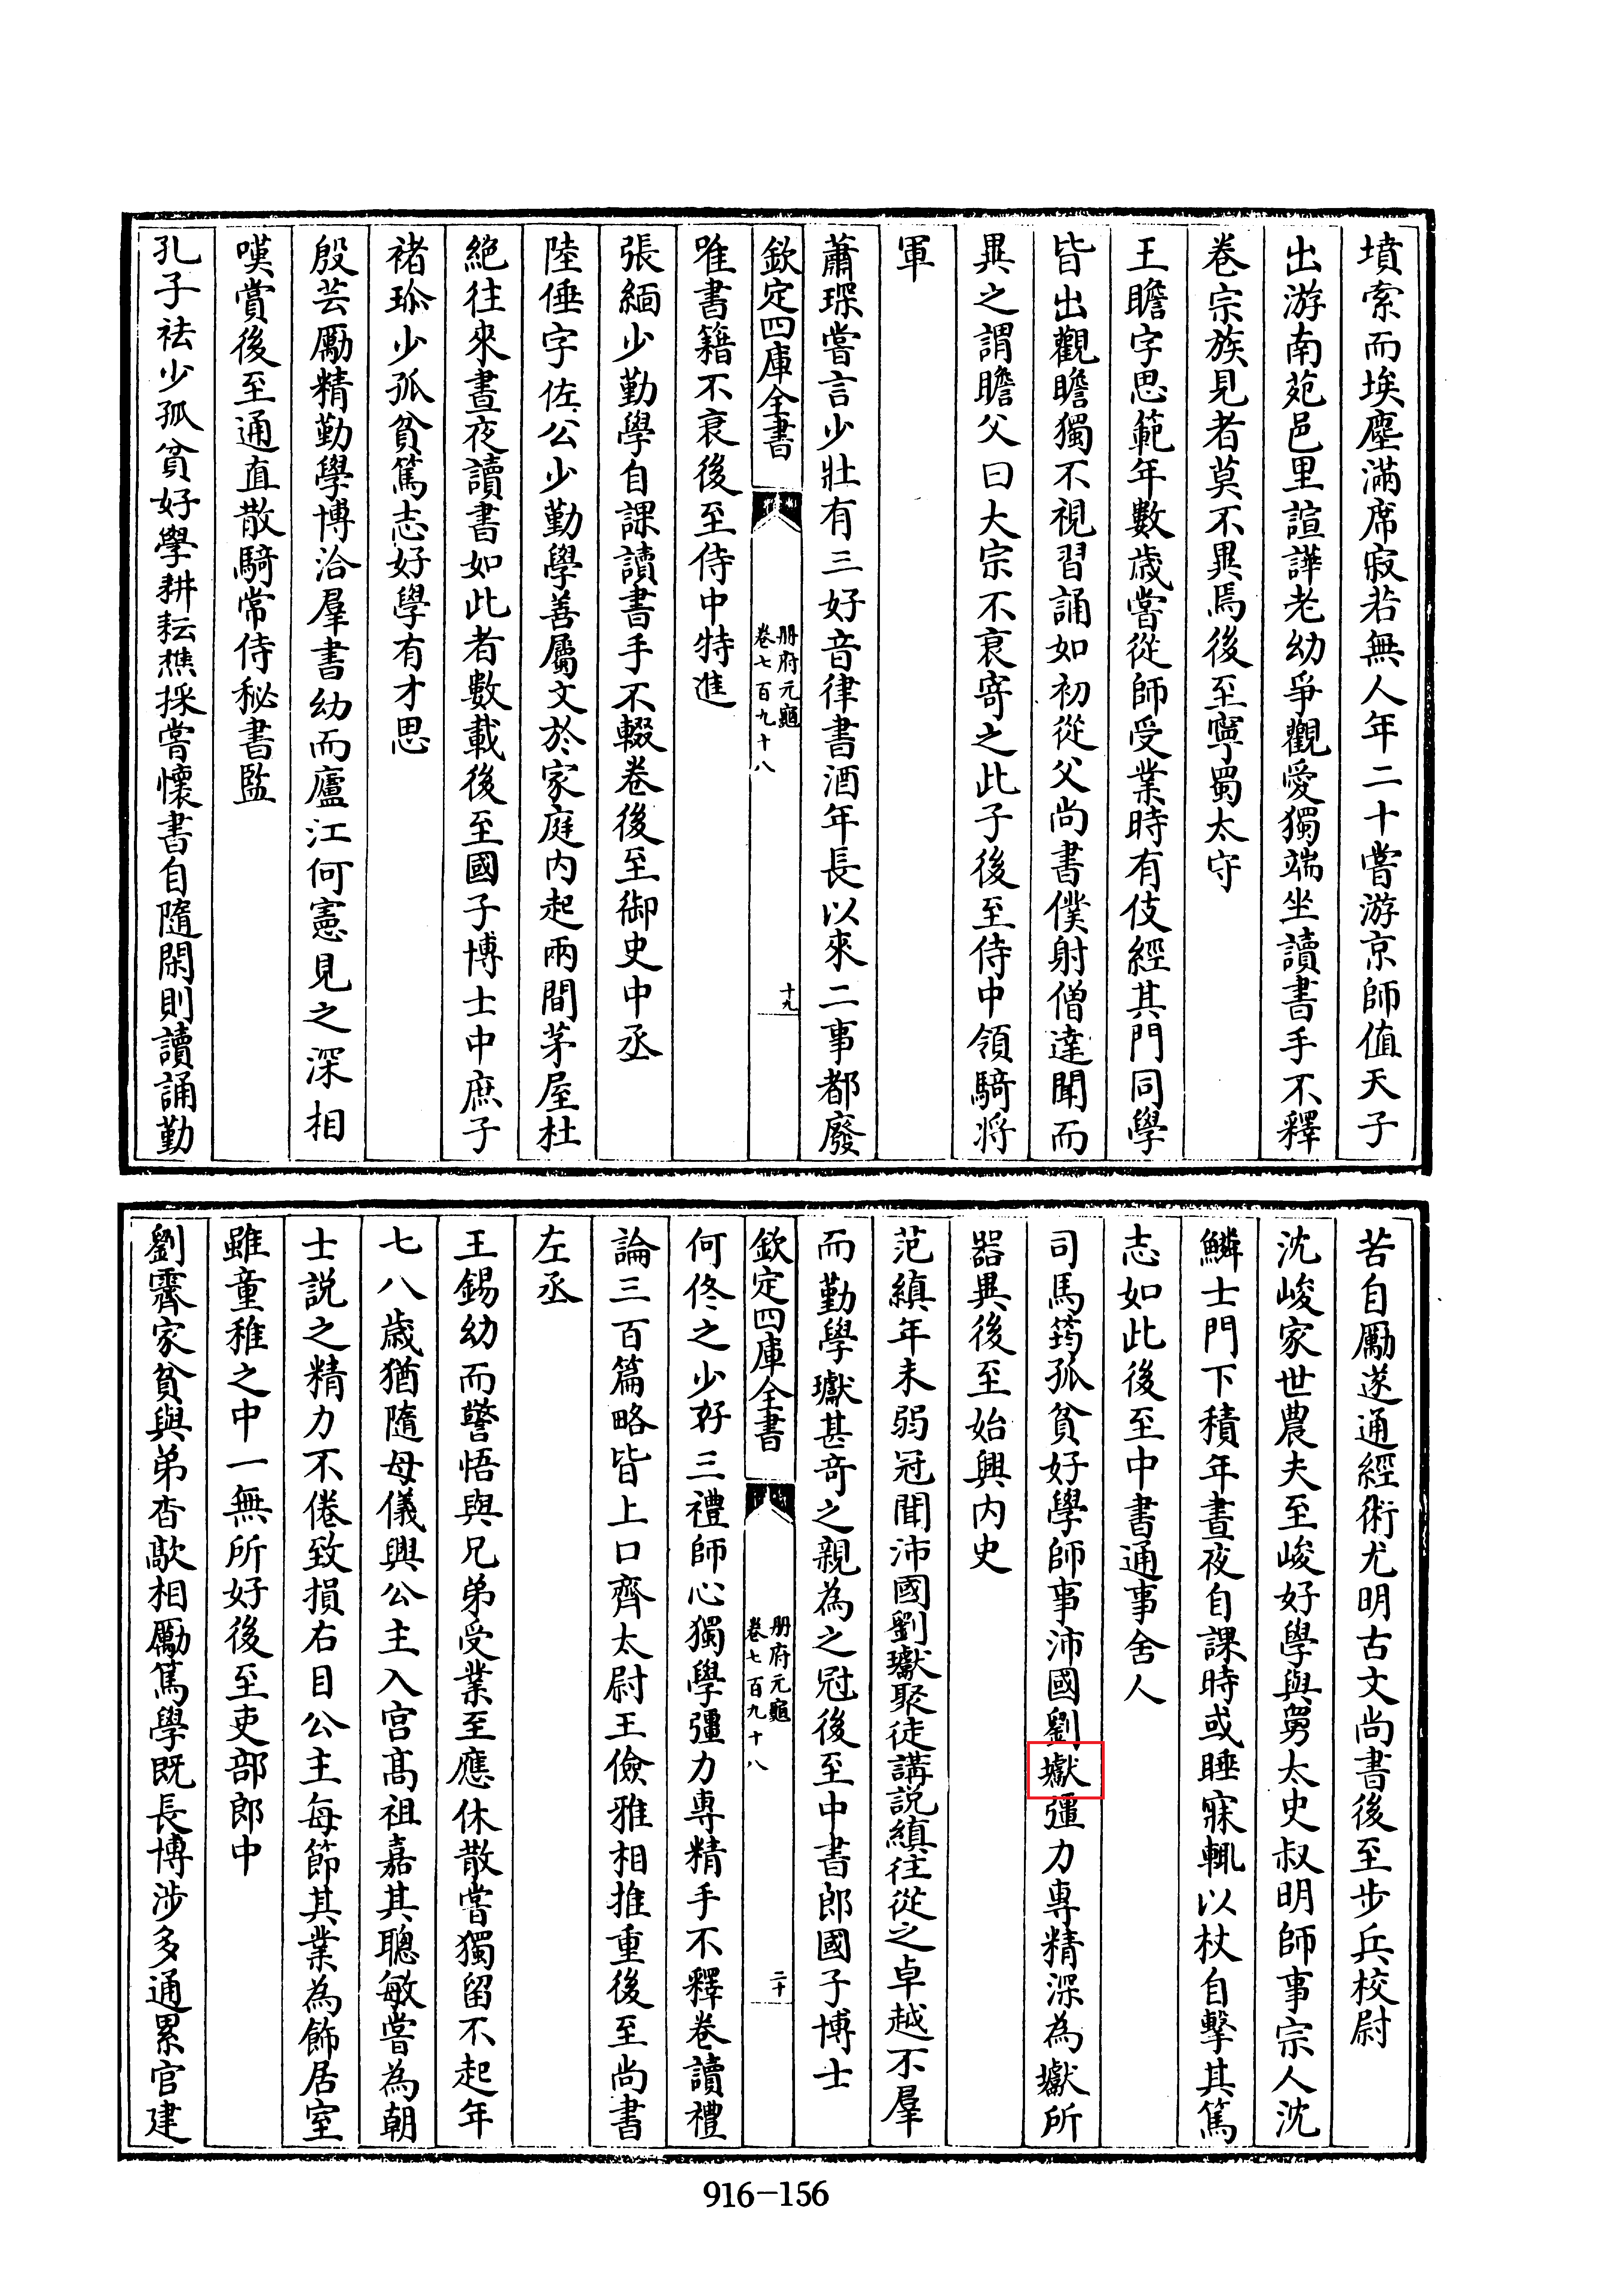 墳索而埃塵滿席寂若無人年二十嘗游京師值天子
出游南苑邑里諠譁老幼爭觀愛獨端坐讀書手不釋
卷宗族見者莫不異焉後至寧蜀太守
王瞻字思範年數歲嘗從師受業時有伎經其門同學
皆出觀瞻獨不視習誦如初從父尚書僕射僧達聞而
異之謂瞻父曰大宗不衰寄之此子後至侍中領驍將
軍
蕭琛嘗言少壯有三好音律書酒年長以來二事都廢
欽定四庫全書
册府元龜
卷七百九十八
十九
唯書籍不衰後至侍中特進
張緬少勤學自課讀書手不輟卷後至御史中丞
陸倕字佐公少勤學善屬文於家庭内起兩間茅屋杜
絕往來晝夜讀書如此者數載後至國子博士中庶子
褚玠少孤貧篤志好學有才思
殷芸勵精勤學博洽羣書幼而廬江何憲見之深相
嘆賞後至通直散騎常侍秘書監
孔子祛少孤貧好學耕耘樵採嘗懷書自隨閑則讀誦勤
苦自勵遂通經術尤明古文尚書後至步兵校尉
沈峻家世農夫至峻好學與舅太史叔明師事宗人沈
鱗士門下積年晝夜自課時或睡寐輒以杖自擊其篤
志如此後至中書通事舍人
司馬筠孤貧好學師事沛國劉瓛彊力專精深為瓛所
器異後至始興内史
范縝年未弱冠聞沛國劉瓛聚徒講説縝往從之卓越不羣
而勤學瓛甚奇之親為之冠後至中書郎國子博士
欽定四庫全書
册府元龜
卷七百九十八
二十
何佟之少好三禮師心獨學彊力專精手不釋卷讀禮
論三百篇略皆上口齊太尉王儉雅相推重後至尚書
左丞
王錫幼而警悟與兄弟受業至應休散嘗獨留不起年
七八歲猶隨母儀興公主入宫髙祖嘉其聰敏嘗為朝
士説之精力不倦致損右目公主每節其業為飾居室
雖童稚之中一無所好後至吏部郎中
劉霽家貧與弟杳歊相勵篤學既長博涉多通累官建
916-156